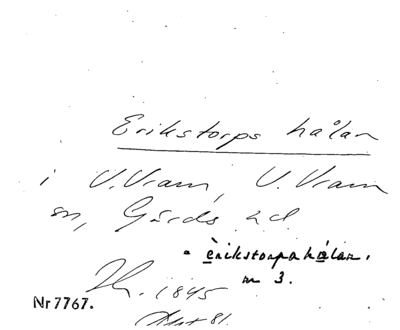 Erikstorps hålan
i V.Vram, V.Vram
sn, Gärds hd
èrikstorpahålan,
m 3.
1845
Nr 7767.
81.